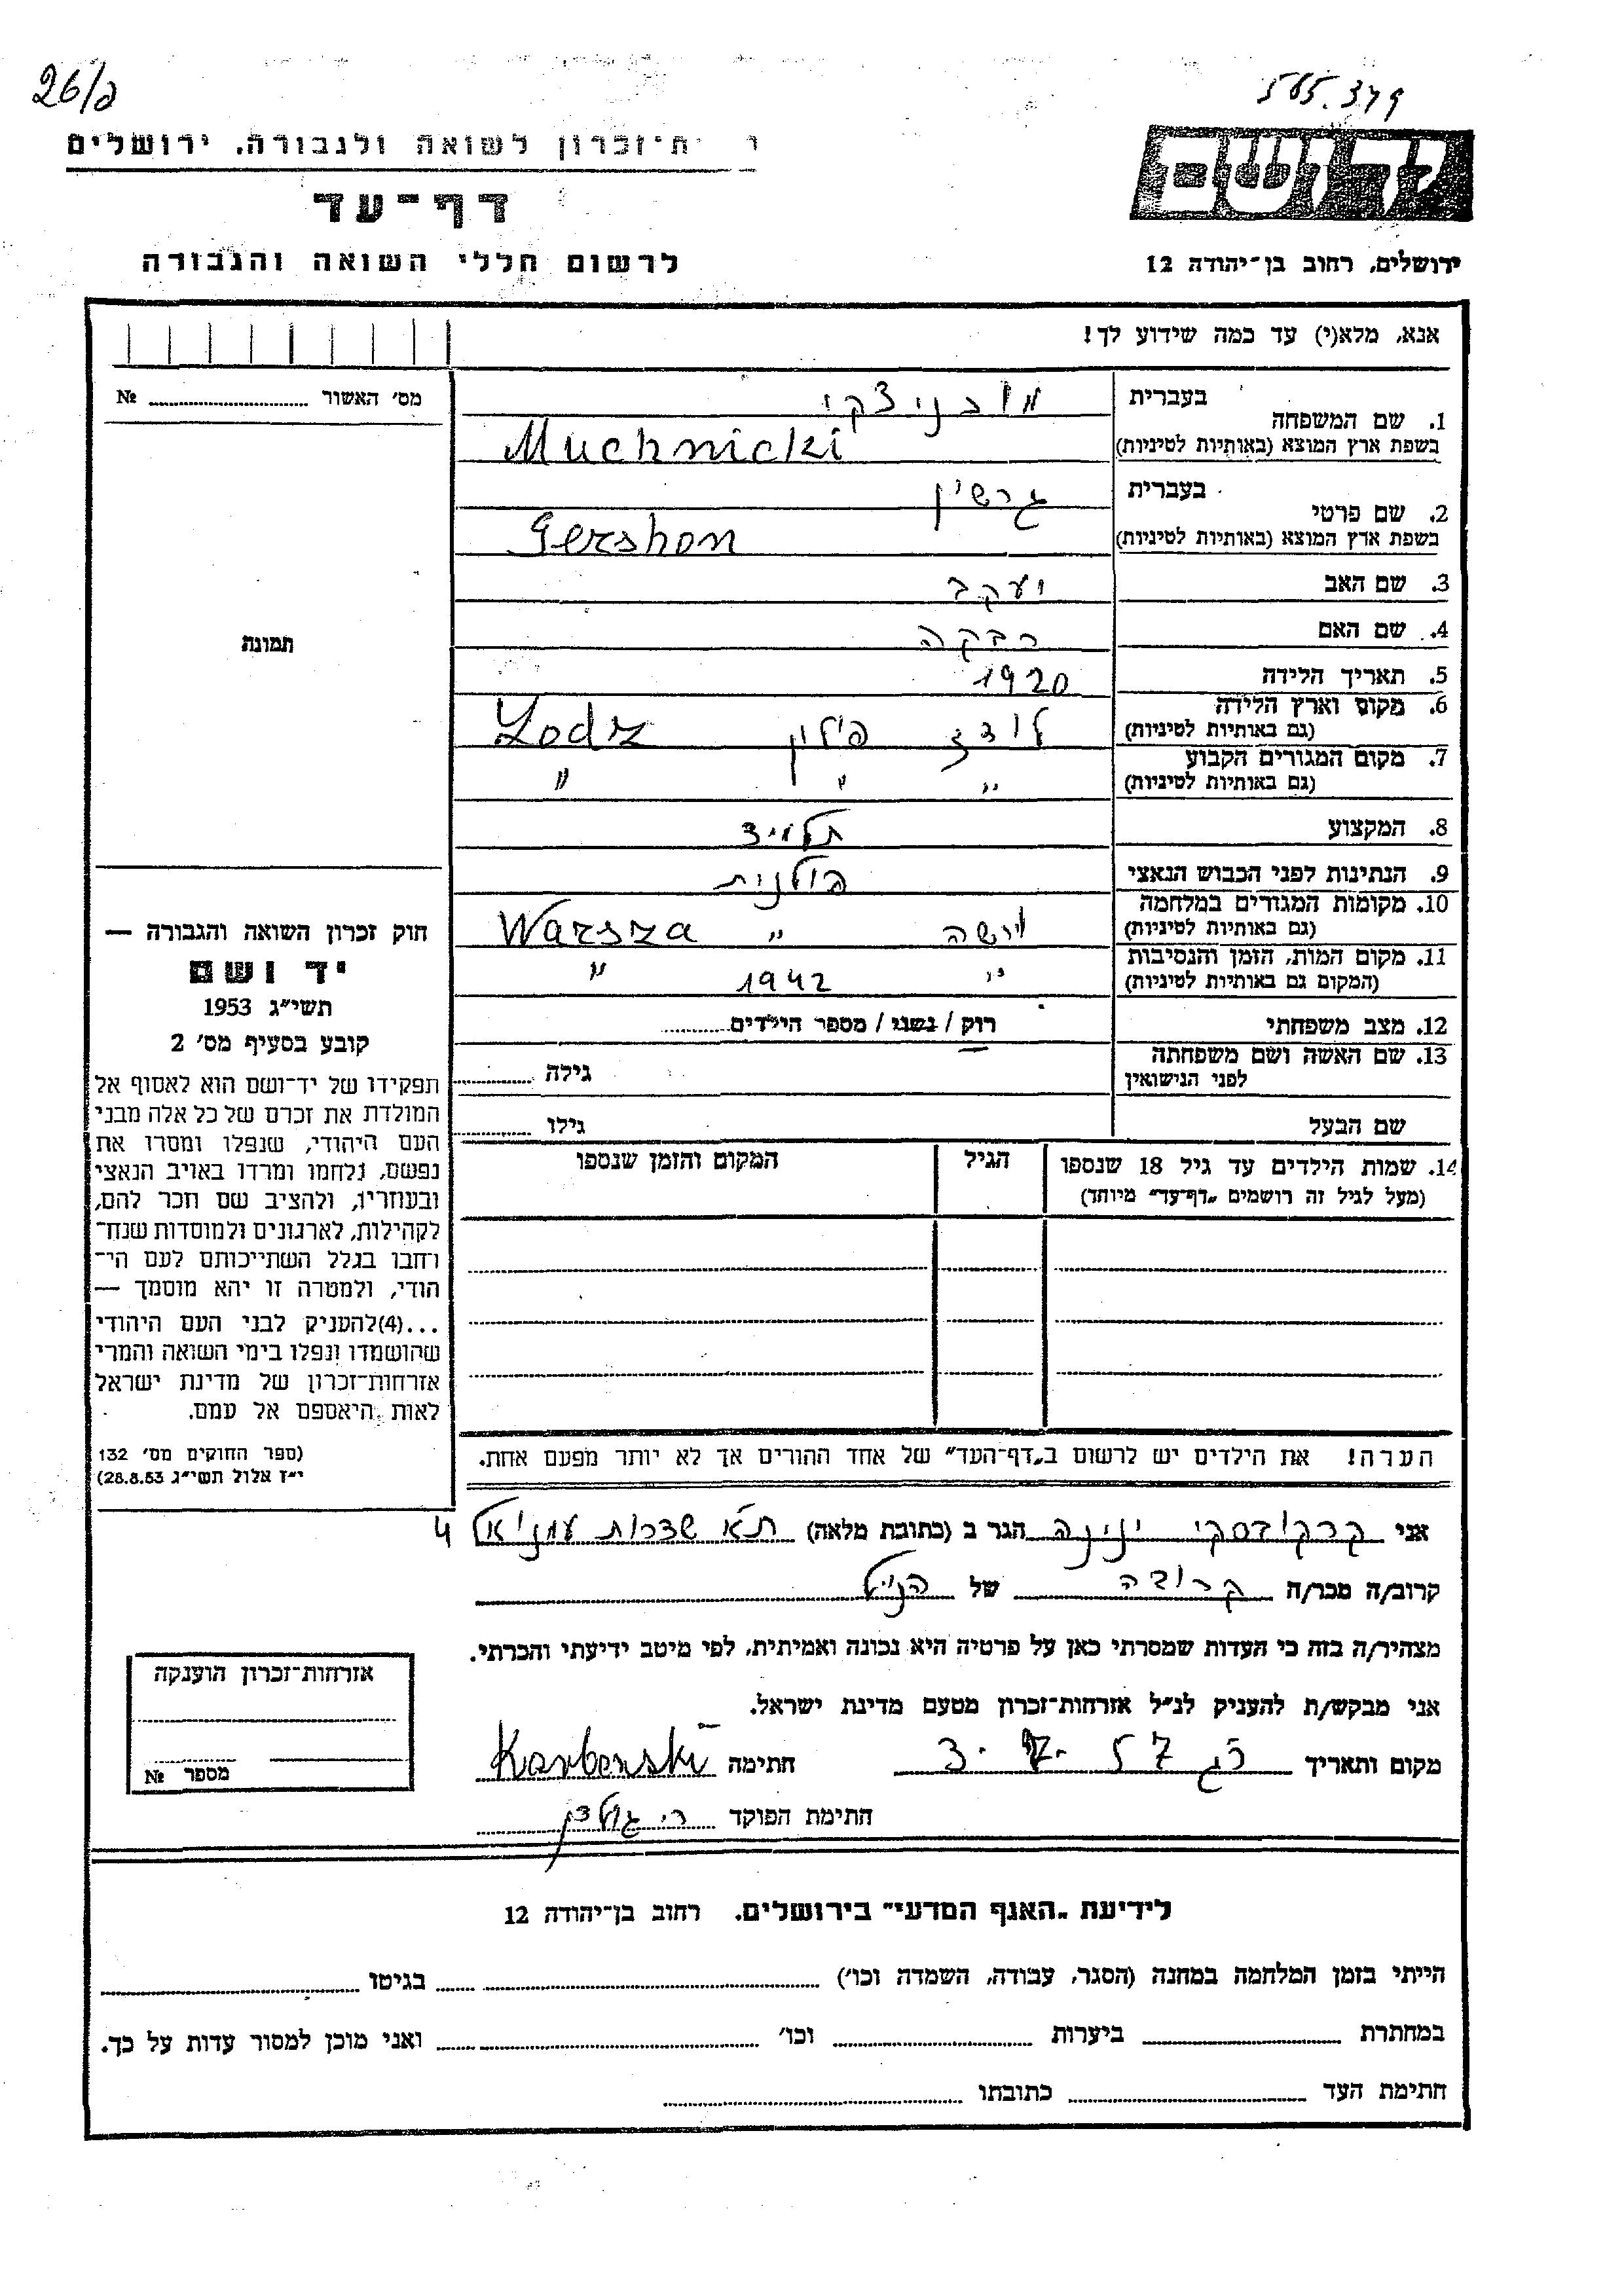 26/ג
565.379
ת־זכרון לשואה ולגבורה, ירושלים
דף־עד
לרשום חללי השואה והגבורה
יד ושם
ירושלים, רחוב בן־יהודה 12
אנא, מלא(י) עד כמה שידוע לך!
מס׳ האשור № 
1. שם המשפחה בעברית מוכניצקי
בשפת ארץ המוצא (באותיות לטיניות) Muchnicki
2. שם פרטי בעברית גרשון
בשפת ארץ המוצא (באותיות לטיניות) Gershon
3. שם האב יעקב
4. שם האם רבקה
5. תאריך הלידה 1920
6. מקום וארץ הלידה (גם באותיות לטיניות) לודז פולין Lodz
7. מקום המגורים הקבוע (גם באותיות לטיניות) " " "
8. המקצוע תלמיד
9. הנתינות לפני הכבוש הנאצי פולנית
10. מקומות המגורים במלחמה (גם באותיות לטיניות) ורשה " Warsza
11. מקום המות, הזמן והנסיבות (המקום גם באותיות לטיניות) " 1942 "
12. מצב משפחתי רוק / נשוי / מספר הילדים
13. שם האשה ושם משפחתה לפני הנישואין גילה
שם הבעל גילו
14. שמות הילדים עד גיל 18 שנספו הגיל המקום והזמן שנספו
(מעל לגיל זה רושמים „דף־עד” מיוחד)
תמונה
חוק זכרון השואה והגבורה —
יד ושם
תשי״ג 1953
קובע בסעיף מס׳ 2
תפקידו של יד־ושם הוא לאסוף אל
המולדת את זכרם של כל אלה מבני
העם היהודי, שנפלו ומסרו את
נפשם, נלחמו ומרדו באויב הנאצי
ובעוזריו, ולהציב שם וזכר להם,
לקהילות, לארגונים ולמוסדות שנח־
רחבו בגלל השתייכותם לעם הי־
הודי, ולמטרה זו יהא מוסמך —
...(4)להעניק לבני העם היהודי
שהושמדו ונפלו בימי השואה והמרי
אזרחות־זכרון של מדינת ישראל
לאות היאספם אל עמם.
(ספר החוקים מס׳ 132
י״ז אלול תשי״ג 28.8.53)
הערה! את הילדים יש לרשום ב„דף־העד” של אחד ההורים אך לא יותר מפעם אחת.
אני ינינה הגר ב (כתובת מלאה) ת״א שדרות עמנואל 4
קרוב/ה מכר/ה קרובה של הנ״ל
מצהיר/ה בזה כי העדות שמסרתי כאן על פרטיה היא נכונה ואמיתית, לפי מיטב ידיעתי והכרתי.
אני מבקש/ת להעניק לנ״ל אזרחות־זכרון מטעם מדינת ישראל.
מקום ותאריך רג 57 3. חתימה
חתימת הפוקד
אזרחות־זכרון הוענקה
מספר №
לידיעת „האגף המדעי” בירושלים. רחוב בן־יהודה 12
הייתי בזמן המלחמה במחנה (הסגר, עבודה, השמדה וכו׳) בגיטו
במחתרת ביערות וכו׳ ואני מוכן למסור עדות על כך.
חתימת העד כתובתו